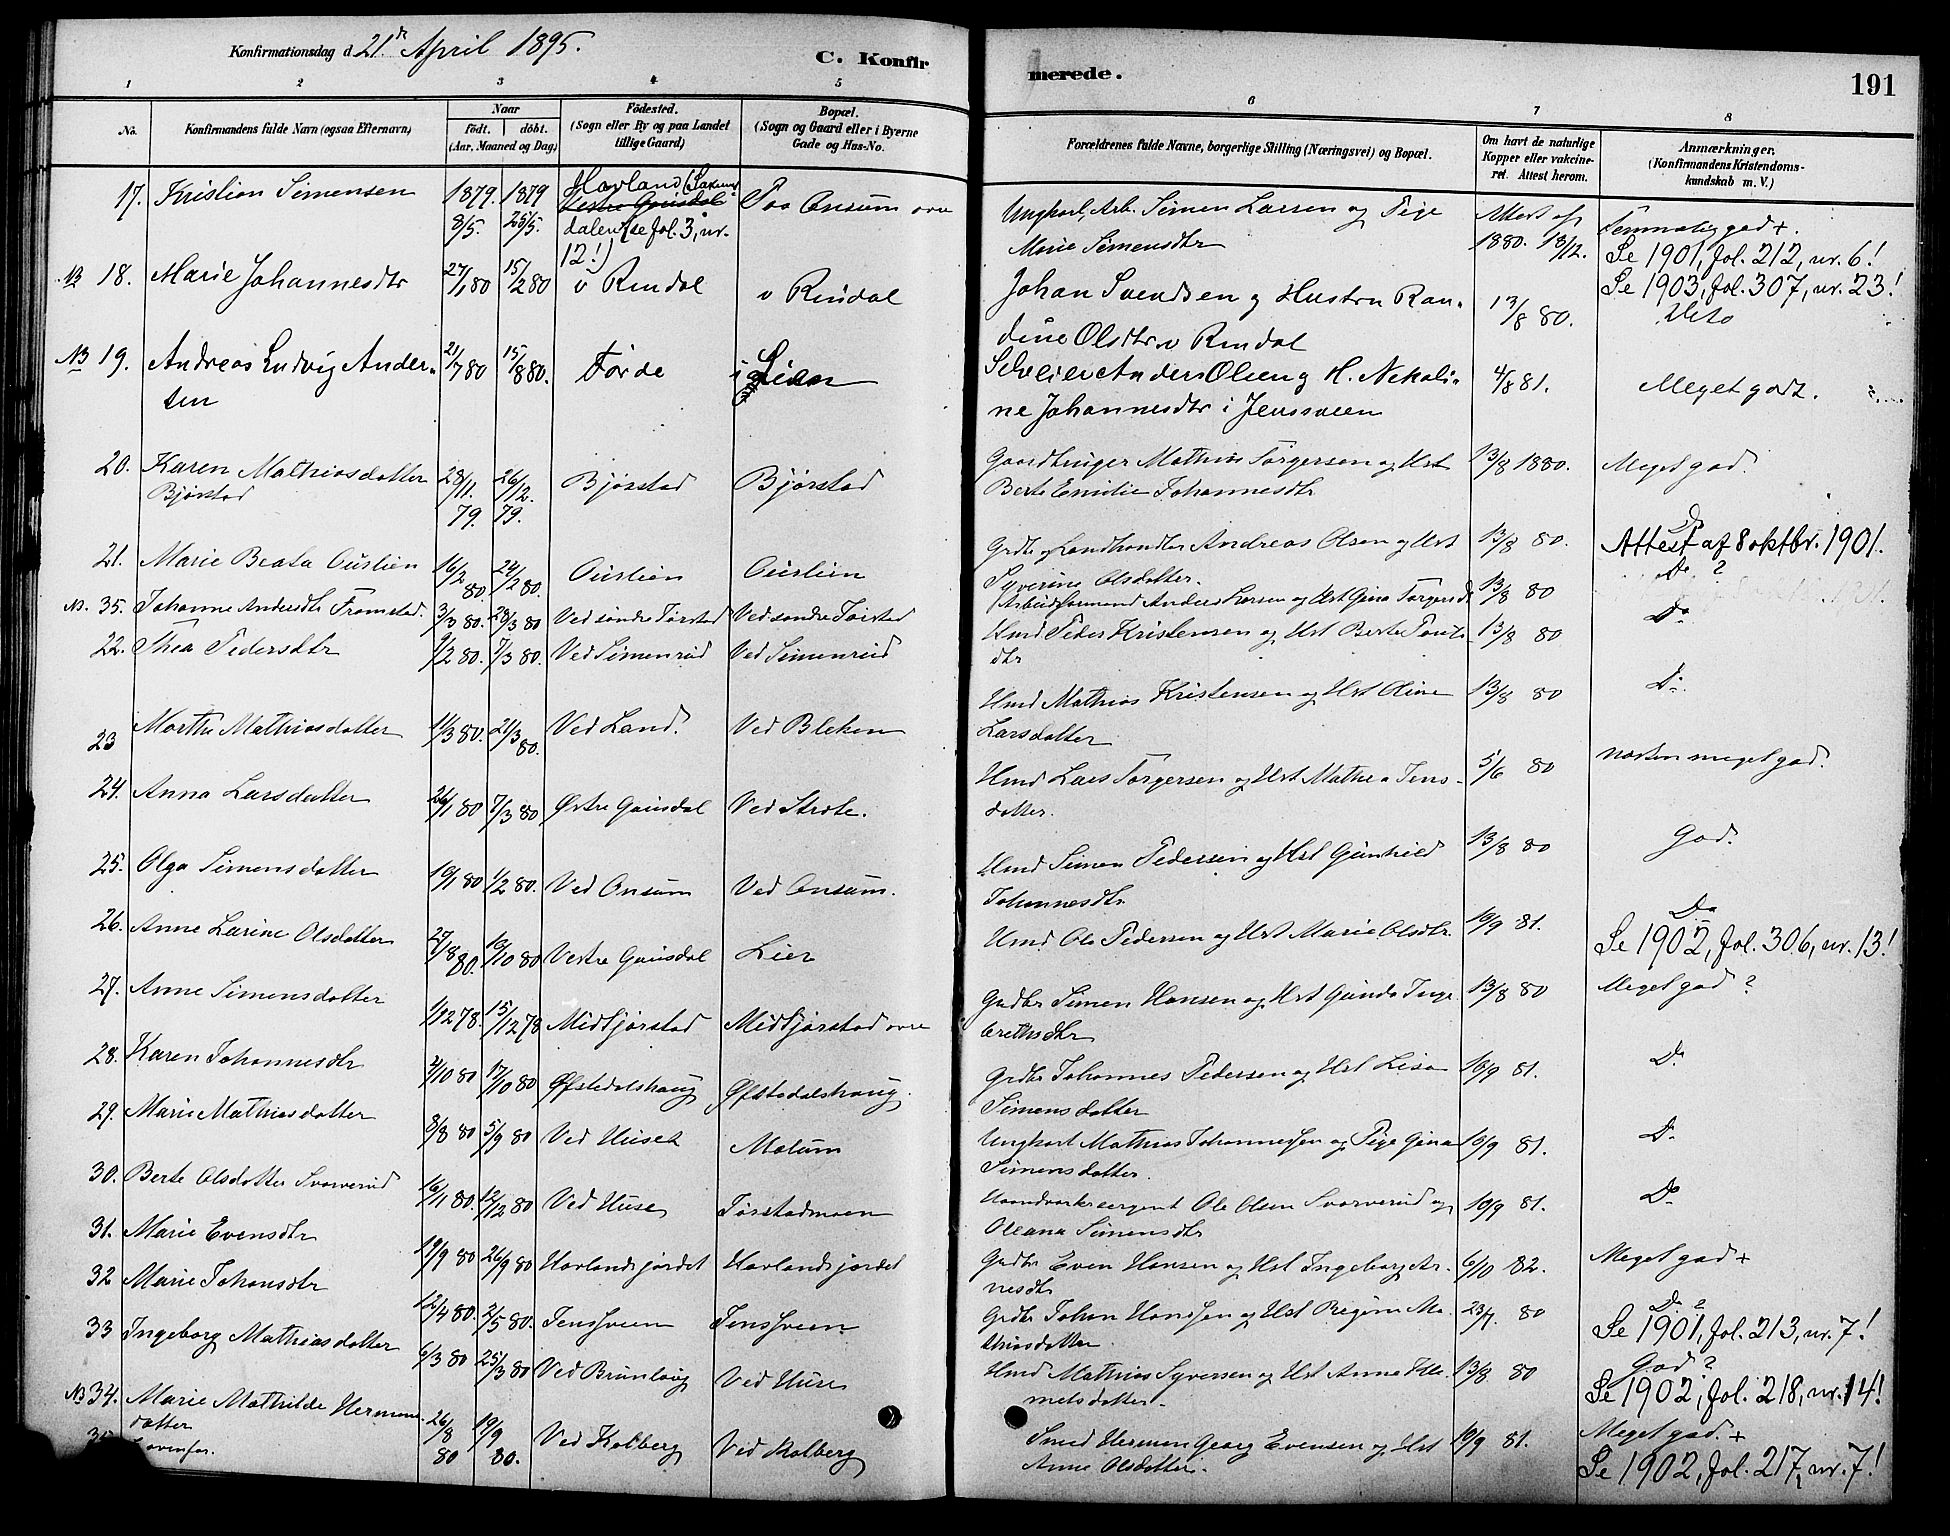 Konfirmationsdag d. 21de April 1895.
C. Konfirmerede.
191
1 2 3 4 5 6 7 8
No.
Konfirmandens fulde Navn (ogsaa Efternavn)
Naar
födt. döbt.
(Aar, Maaned og Dag)
Födested.
(Sogn eller By og paa Landet
tillige Gaard)
Bopæl.
(Sogn og Gaard eller i Byerne
Gade og Hus-No.
Forældrenes fulde Navne, borgerlige Stilling (Næringsvei) og Bopæl.
Om havt de naturlige
Kopper eller vakcine-
ret. Attest herom.
Anmærkninger.
(Konfirmandens Kristendoms-
kundskab m. V.)
17. Kristian Simensen 1879. 8/5. 1879 25/5. Havland
Vestre Gausdal
dalen (se fol. 3, nr.
12!)
Paa Onsum øvre
Ungkarl, Arb. Simen Larsen og Pige
Marie Simensdtr
Attest af
1880. 13/12.
Temmelig god +.
Se 1901, fol. 212, nr. 6!
NB 18. Marie Johannesdtr 27/1 80 15/2 80 v Rindal v Rindal
Johan Svendsen og Hustru Ran-
dine Olsdtr v Rindal
13/8 80.
Se 1903, fol. 307, nr. 23!
NB 19. Andreas Ludvig Ander-
sen
21/7 80 15/8 80. Førde i Lien
Selveier Anders Olsen og H. Nekoli-
ne Johannesdtr i Jenssveen
4/8 81.
Meget godt.
20. Karen Mathiasdatter
Bjørstad
28/11. 79. 26/12. 79. Bjørstad Bjørstad
Gaardbruger Mathias Torgersen og Hst
Berte Emilie Johannesdtr
13/8 1880. Meget god.
21. Marie Beata Austlien 16/2 80. 24/2 80. Austlien Austlien
Grdbr og Landhandler Andreas Olsen og Hst
Syverine Olsdatter.
13/8 80. Do
Attest af 8 oktbr. 1901.
NB. 35. Johanne Andersdtr Framstad. 3/3 80. 28/3 80 Ved søndre Tørstad Ved søndre Tørstad
Arbeidsformand Anders Larsen og Hst Gina Torgersd.
13/8 80 Do ?
22. Thea Pedersdtr 9/2 80. 7/3 80. Ved Simenrud Ved Simenrud
Hmd Peder Kristensen og Hst Berte Pauls-
dtr
13/8 80 Do
23 Marthe Mathiasdatter 11/3 80. 21/3 80. Ved Land. Ved Bleken
Hmd Mathias Kristensen og Hst Oline
Larsdatter
13/8 80 Do.
24. Anna Larsdatter 26/1 80 7/3 80 Østre Gausdal Ved Strøte.
Hmd Lars Torgersen og Hst Mathea Jens-
datter.
5/6 80 næsten meget god.
25. Olga Simensdatter 10/1 80 1/2 80. Ved Onsum Ved Onsum.
Hmd Simen Pedersen og Hst Gunhild
Johannesdtr
13/8 80 God.
26. Anne Larine Olsdatter 27/8 80. 10/10 80 Vestre Gausdal Lier
Hmd Ole Pedersen og Hst Marie Olsdtr.
10/9 81. Do
Se 1902, fol. 306, nr. 13!
27. Anne Simensdatter 1/12 78. 15/12 78 Midtjørstad Midtjørstad øvre
Grdbr Simen Hansen og Hst Gunda Inge-
brethsdtr
13/8 80 Meget god ?
28. Karen Johannesdtr 2/10 80 17/10 80 Øfstedalshaug Øfstedalshaug.
Grdbr Johannes Pedersen og Hst Lisa
Simensdatter
10/9 81. Do
29. Marie Mathiasdatter 8/8 80 5/9 80 Ved Huset Molum
Ungkarl Mathias Johannessen og Pige Gina
Simensdatter
10/9 81. Do
30. Berte Olsdatter Svarverud 16/11 80. 12/12 80 Ved Huse Tørstadmoen
Haandverkssergent Ole Olsen Svarverud og
Oleana Simensdtr
10/9 81. Do
31. Marie Evensdtr 19/9 80 26/9 80 Havlandsjordet Havlandsjordet
Grdbr Even Hansen og Hst Ingeborg Ar-
nesdtr
6/10 82. Meget god +
32 Marie Johansdtr 12/4 80. 2/5 80. Jenssveen Jenssveen
Grdbr Johan Hansen og Hst Regine Ma-
thiasdatter
23/7. 80 Do ?
Se 1901, fol. 213, nr. 7!
33 Ingeborg Mathiasdatter 6/3 80 25/3 80 Ved Brunlaug Ved Huse
Hmd Mathias Syversen og Hst Anne Hel-
metsdatter.
13/8 80 God ?
Se 1902, fol. 218, nr. 14!
NB 34. Marie Mathilde Herman-
datter
26/8 80 19/9 80. Ved Kolberg Ved Kolberg
Smed Herman Georg Evensen og Hst
Anne Olsdatter.
10/9 81. Meget god. +
Se 1902, fol. 217, nr. 7!